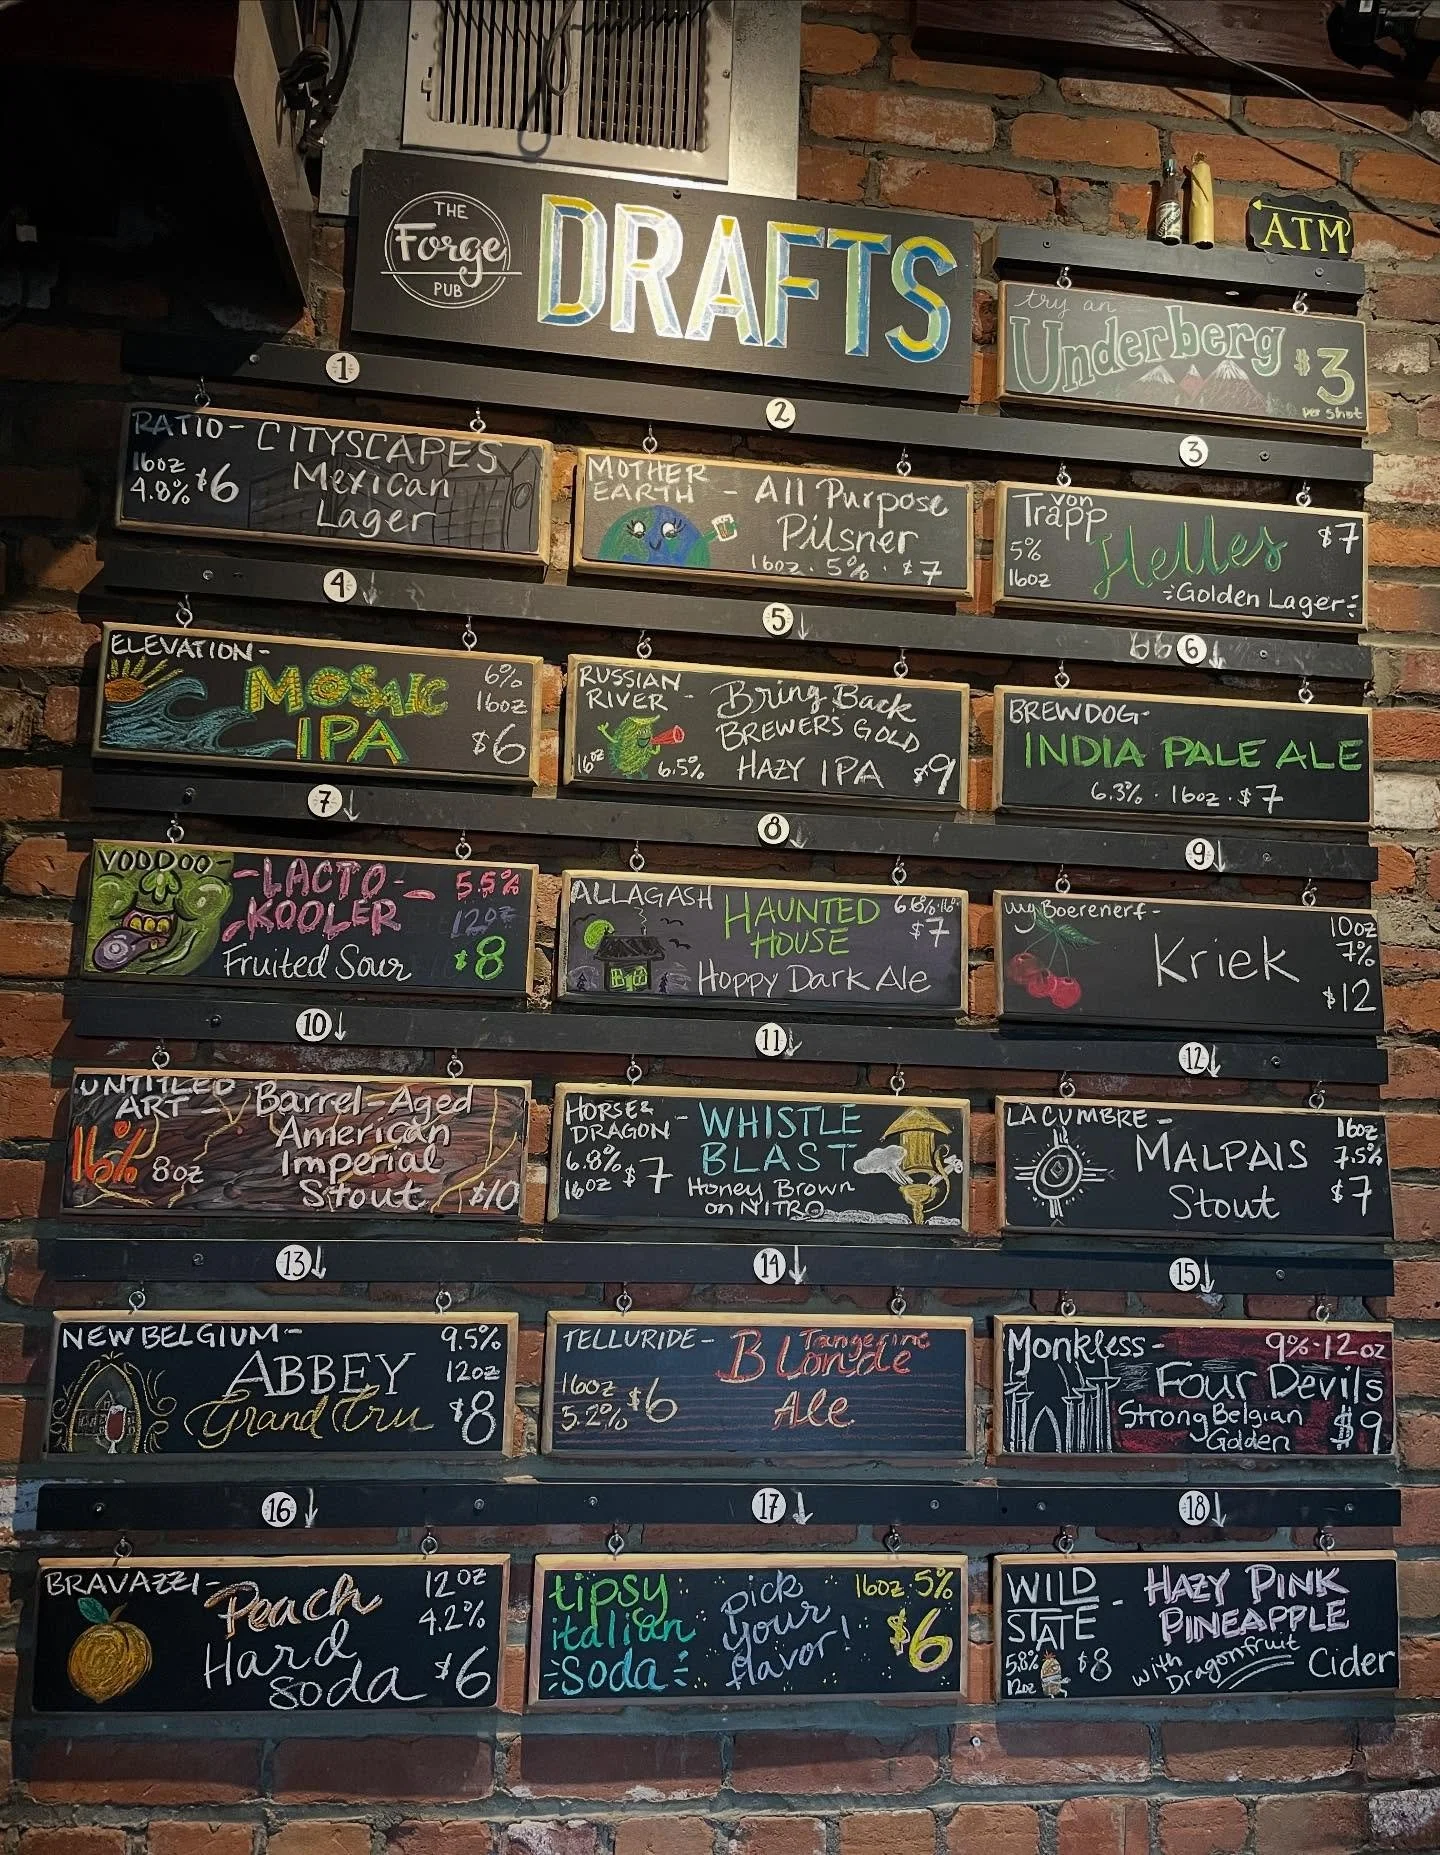 THE
Forge
PUB
DRAFTS
ATM
try an
Underberg $3
per shot
1
RATIO- CITYSCAPES
16oz
4.8% $6
Mexican
Lager
2
MOTHER
EARTH - All Purpose
Pilsner
16oz. 5%. $7
3
von
Trapp
Helles
$7
5%
16oz
Golden Lager
4
ELEVATION-
MOSAIC
IPA
6%
16oz
$6
5
RUSSIAN
RIVER - Bring Back
BREWERS GOLD
HAZY IPA
16oz 6.5%
$9
6
BREWDOG-
INDIA PALE ALE
6.3% · 16oz · $7
7
VOODOO-
-LACTO-
KOOLER
Fruited Sour
5.5%
12oz
$8
8
ALLAGASH
HAUNTED
HOUSE
Hoppy Dark Ale
$7
9
Boerenerf-
Kriek
10oz
7%
$12
10
UNTITLED
ART - Barrel-Aged
American
Imperial
Stout
16% 8oz
$10
11
HORSE &
DRAGON - WHISTLE
BLAST
Honey Brown
on NITRO
6.8%
16oz $7
12
LA CUMBRE -
MALPAIS
Stout
16oz
7.5%
$7
13
NEW BELGIUM-
ABBEY
Grand Cru
9.5%
12oz
$8
14
TELLURIDE- Tangerine
Blonde
Ale
16oz
5.2% $6
15
Monkless- 9%-12oz
Four Devils
Strong Belgian
Golden
$9
16
BRAVAZZI-
Peach
Hard
Soda
12oz
4.2%
$6
17
tipsy
italian
soda
pick
your
flavor!
16oz. 5%
$6
18
WILD
STATE - HAZY PINK
PINEAPPLE
with
Dragonfruit Cider
5.8%
12oz
$8